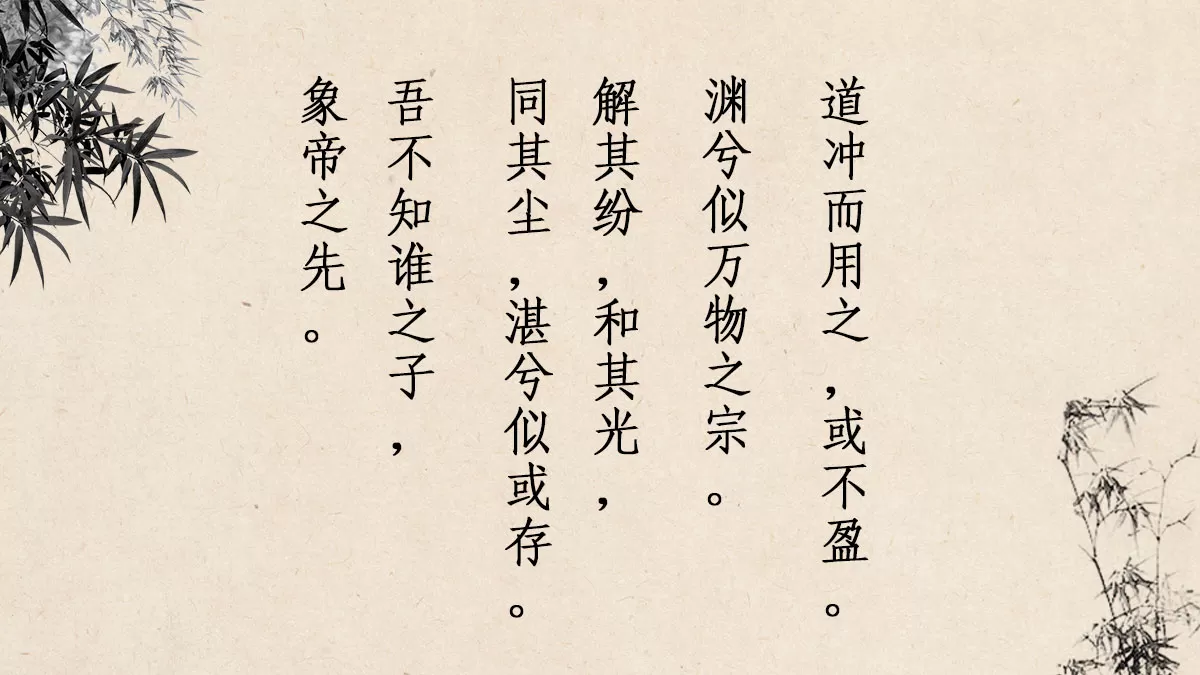 道冲而用之,或不盈。
渊兮似万物之宗。
解其纷,和其光,
同其尘,湛兮似或存。
吾不知谁之子,
象帝之先。